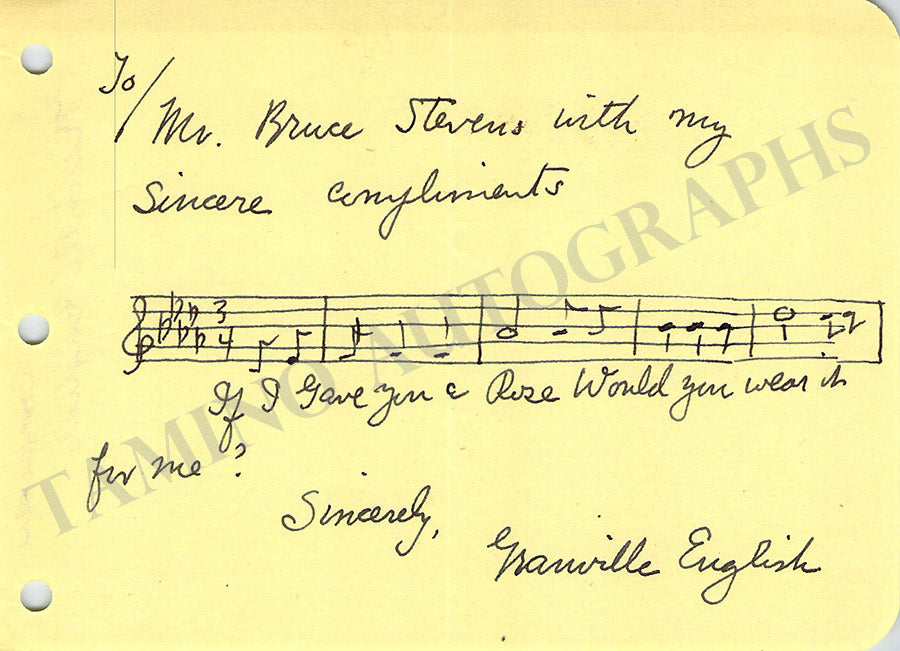 To/
Mr. Bruce Stevens with my
Sincere compliments
3
4
If I Gave you a Rose Would you wear it
for me?
Sincerely,
Granville English
TAMINO AUTOGRAPHS